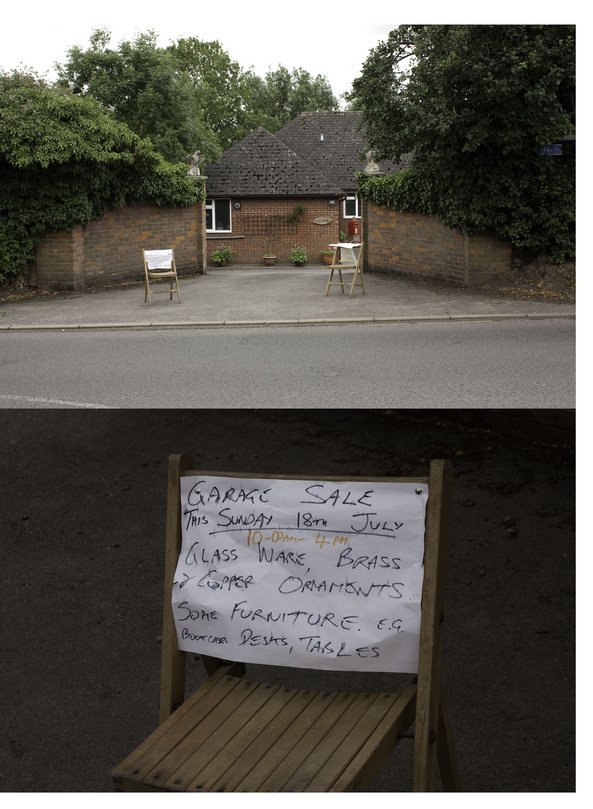 GARAGE SALE
THIS SUNDAY 18TH JULY
10-00AM- 4PM
GLASS WARE, BRASS
& COPPER ORNAMENTS.
SOME FURNITURE. E.G.
BOOKCASES DESKS, TABLES